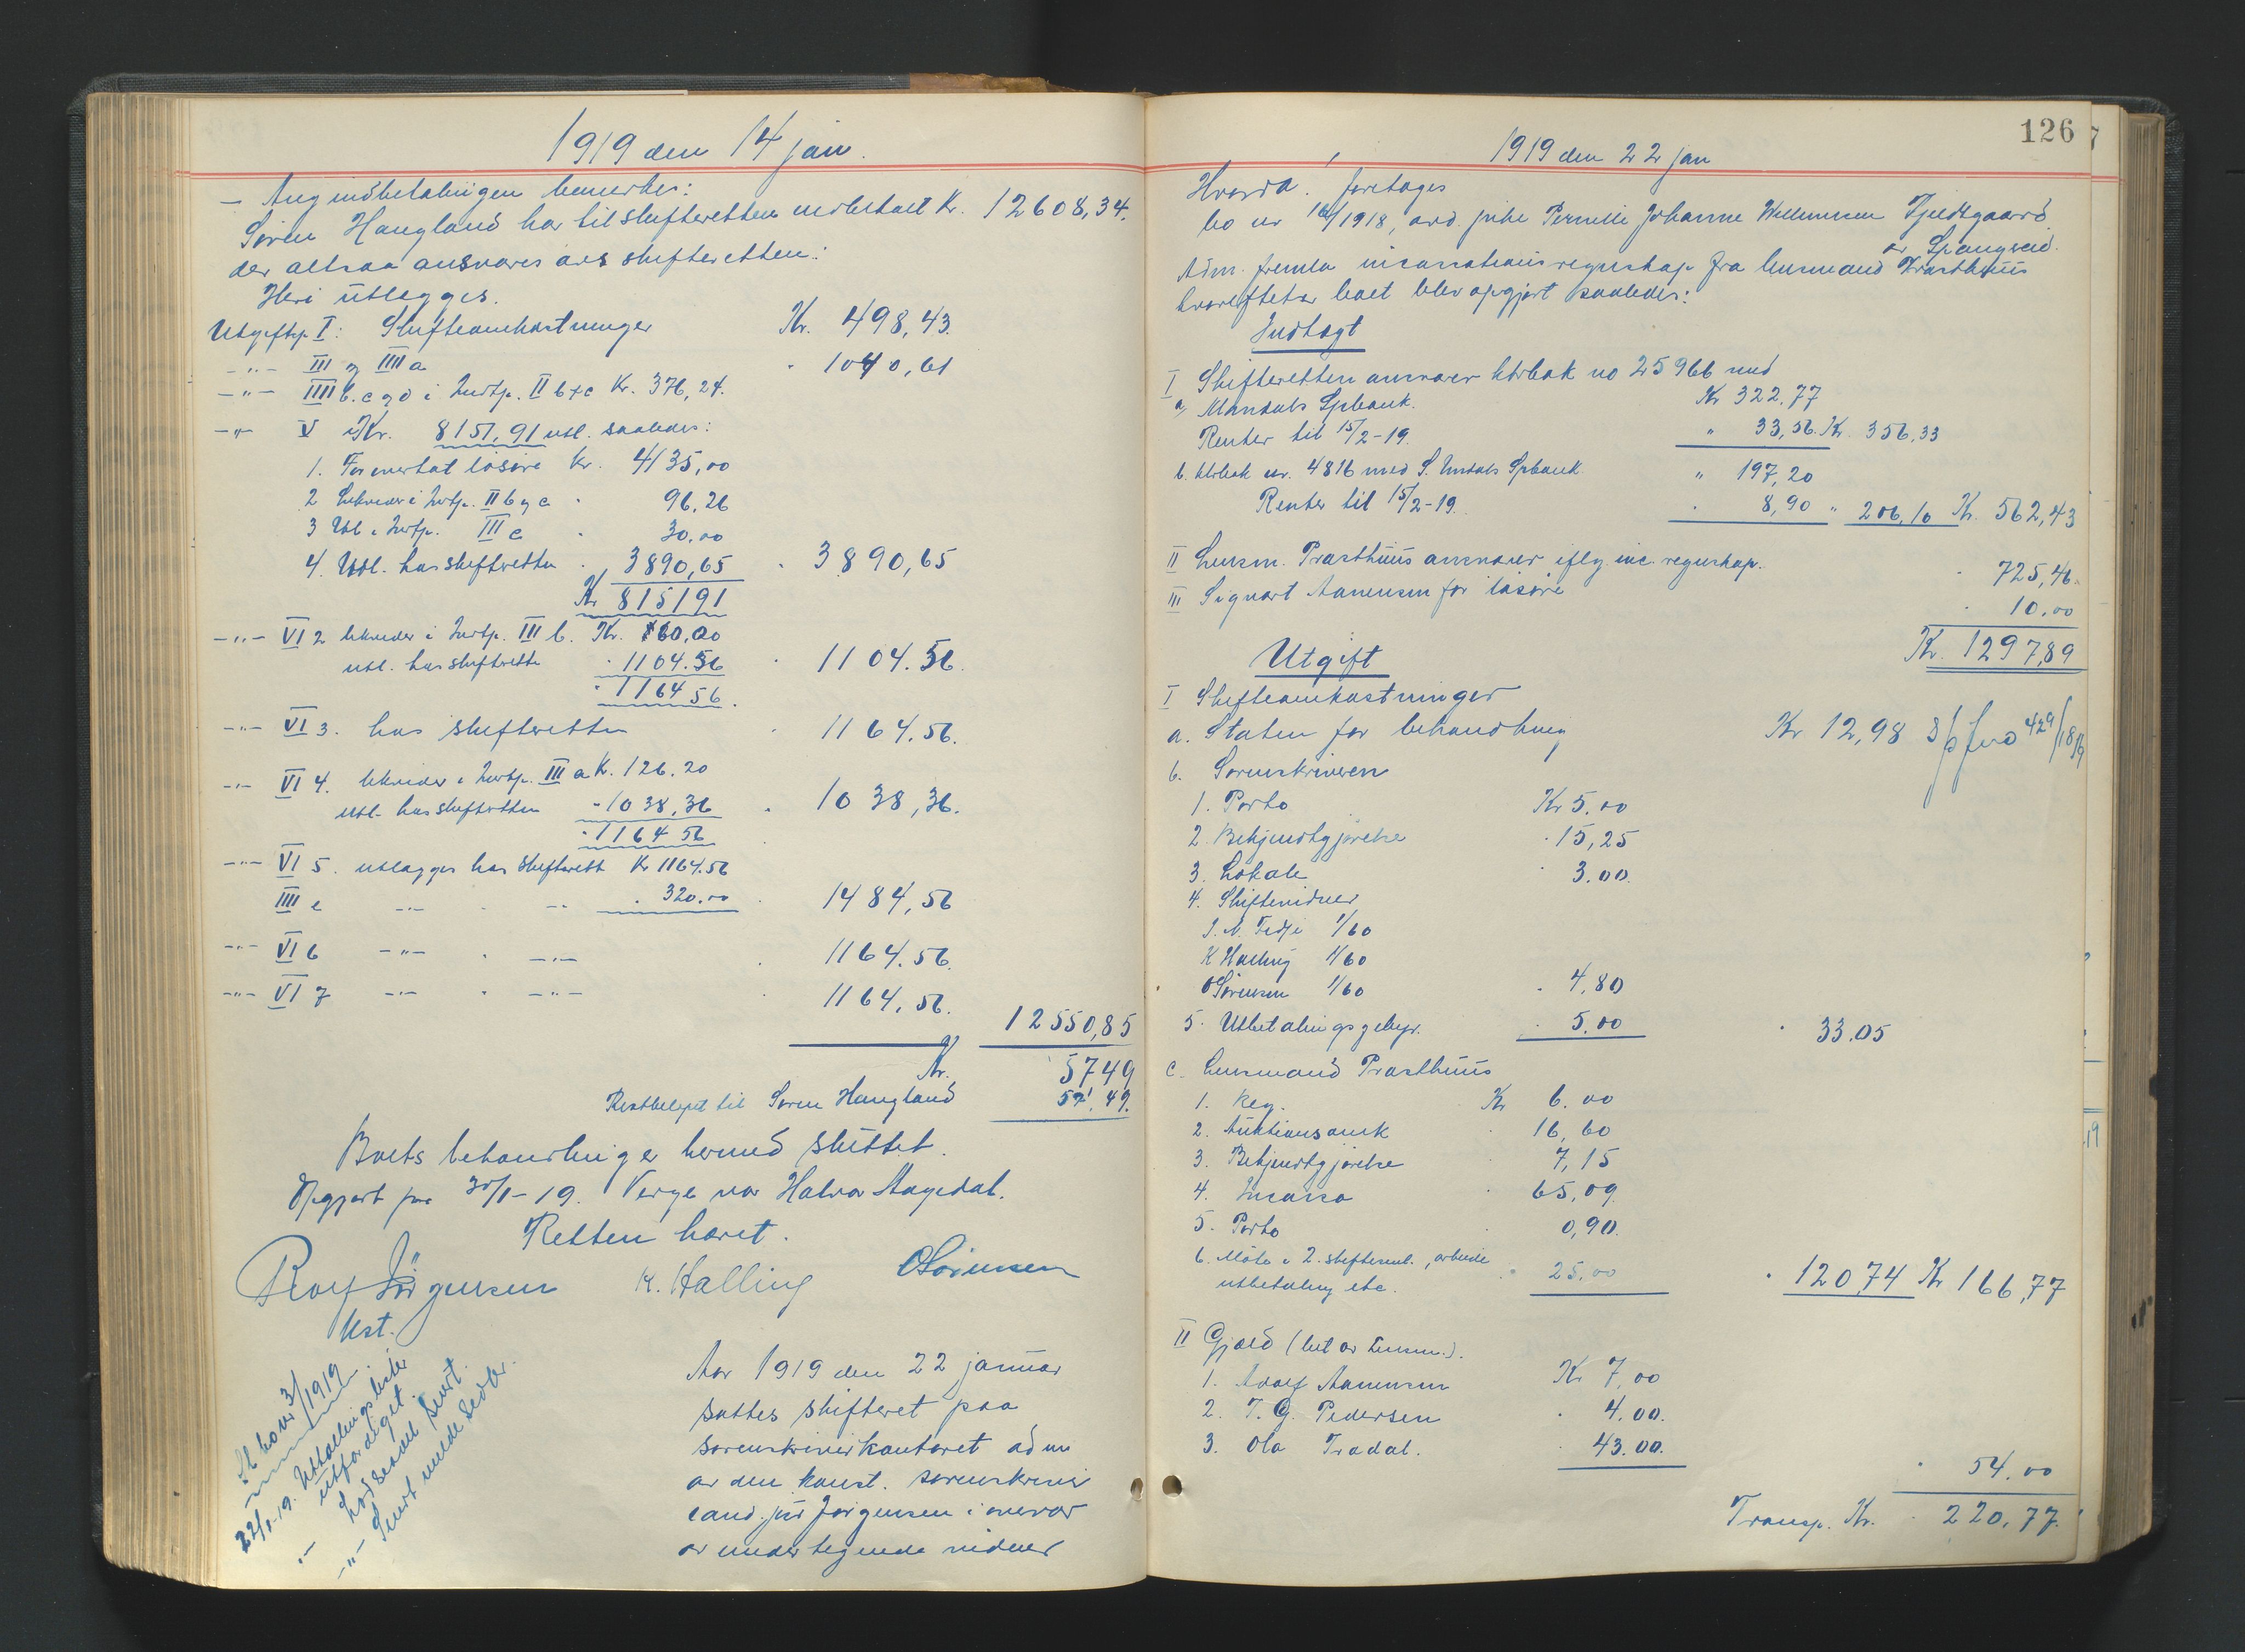 1919 den 14 jan.
— Ang indbetalingen bemerkes:
Søren Haugland har til skifteretten indbetalt Kr. 12608,34.
der altsaa ansvares av skifteretten.
Heri utlegges.
Utgiftsp I: Skifteomkostninger Kr. 498,43.
—"— III og IIII a " 1040,61
—"— IIII b. c og d i Indtp. II b + c Kr. 376,24.
—"— V Kr. 8151,91 utl. saaledes:
1. Forøverlat løsøre Kr. 4135,00
2 Likvider i Indtp. II b og c " 96,26
3 Utl i Indtp. III c " 30.00
4. Utl. hos skifteretten " 3890,65 " 3890,65
Kr 8151 91
—"— VI 2 likvider i Indtp. III b. Kr. 60,00
utl. hos skifterette " 1104.56 " 1104.56.
" 1164 56.
—"— VI 3. hos skifteretten " 1164.56.
—"— VI 4. likvider i Indtp. III a K. 126.20
utl. hos skifteretten " 1038,36 " 1038,36.
" 1164 56
—"— VI 5. utlægges hos Skifterett Kr 1164.56
IIII e —"— " —"— " 320.00 " 1484,56
—"— VI 6 —"— " —"— " 1164.56.
—"— VI 7 —"— " —"— " 1164,56. 12550,85
Kr. 57 49
Restbeløpet til Søren Haugland 57,49.
Boets behandling er hermed sluttet.
Opgjort paa 30/1-19. Verge var Halvor Aagedal.
Retten hævet.
Rolf Jørgensen K. Halling O Sørensen
kst.
31/1919
22/1-19. Utbetalingslister
utfærdiget.
Aar 1919 den 22 januar
sattes skifteret paa
sorenskriverkontoret adm
av den konst. sorenskriver
cand. jur Jørgensen i overvær
av undertegnede vidner
126
1919 den 22 jan
Hvorda. foretages
bo nr 16/1918, avd. pike Pernille Johanne Willumsen Fjeldsgaard
av Spangereid.
Adm. fremla incassationsregnskap fra lensmand Præsthuus
hvorefter boet blev opgjort saaledes:
Indtægt
I Skifteretten ansvarer ktrbok no 25966 med
a, Mandals Spbank. Kr 322.77
Renter til 15/2-19. " 33,56. Kr. 356,33
b. ktrbok nr. 4816 med S. Undals Spbank " 197,20
Renter til 15/2-19. " 8,90 " 206,10 Kr. 562,43
II Lensm. Præsthuus ansvarer ifølg inc. regnskap. " 725,46.
III Sigvart Aanensen for løsøre " 10.00
Kr. 1297,89
Utgift
I Skifteomkostninger
a. Staten for behandling Kr 12,98
b. Sorenskriveren
1. Porto Kr 5.00
2. Bekjendtgjørelse " 15,25
3. Lokale " 3.00.
4. Skiftevidner
J. N. Tedje 1/60
K Halling 1/60
O Sørensen 1/60 " 4,80
5. Utbetalingsgebyr. " 5.00 " 33.05
c. Lensmand Præsthuus
1. Reg. Kr 6.00
2. Auktionsomk " 16,60
3. Bekjendtgjørelse " 7,15
4. Incasso " 65,09
5. Porto 0,90.
6. Møte i 2. skiftesaml., arbeide
utbetaling etc. " 25,00 " 120,74 Kr 166,77
II Gjæld (bet av Lensm.).
1. Adolf Aanensen Kr 7,00
2. T. G. Pedersen " 4.00.
3. Ola Trædal. " 43.00.
" 54.00
Transp. Kr. " 220,77.